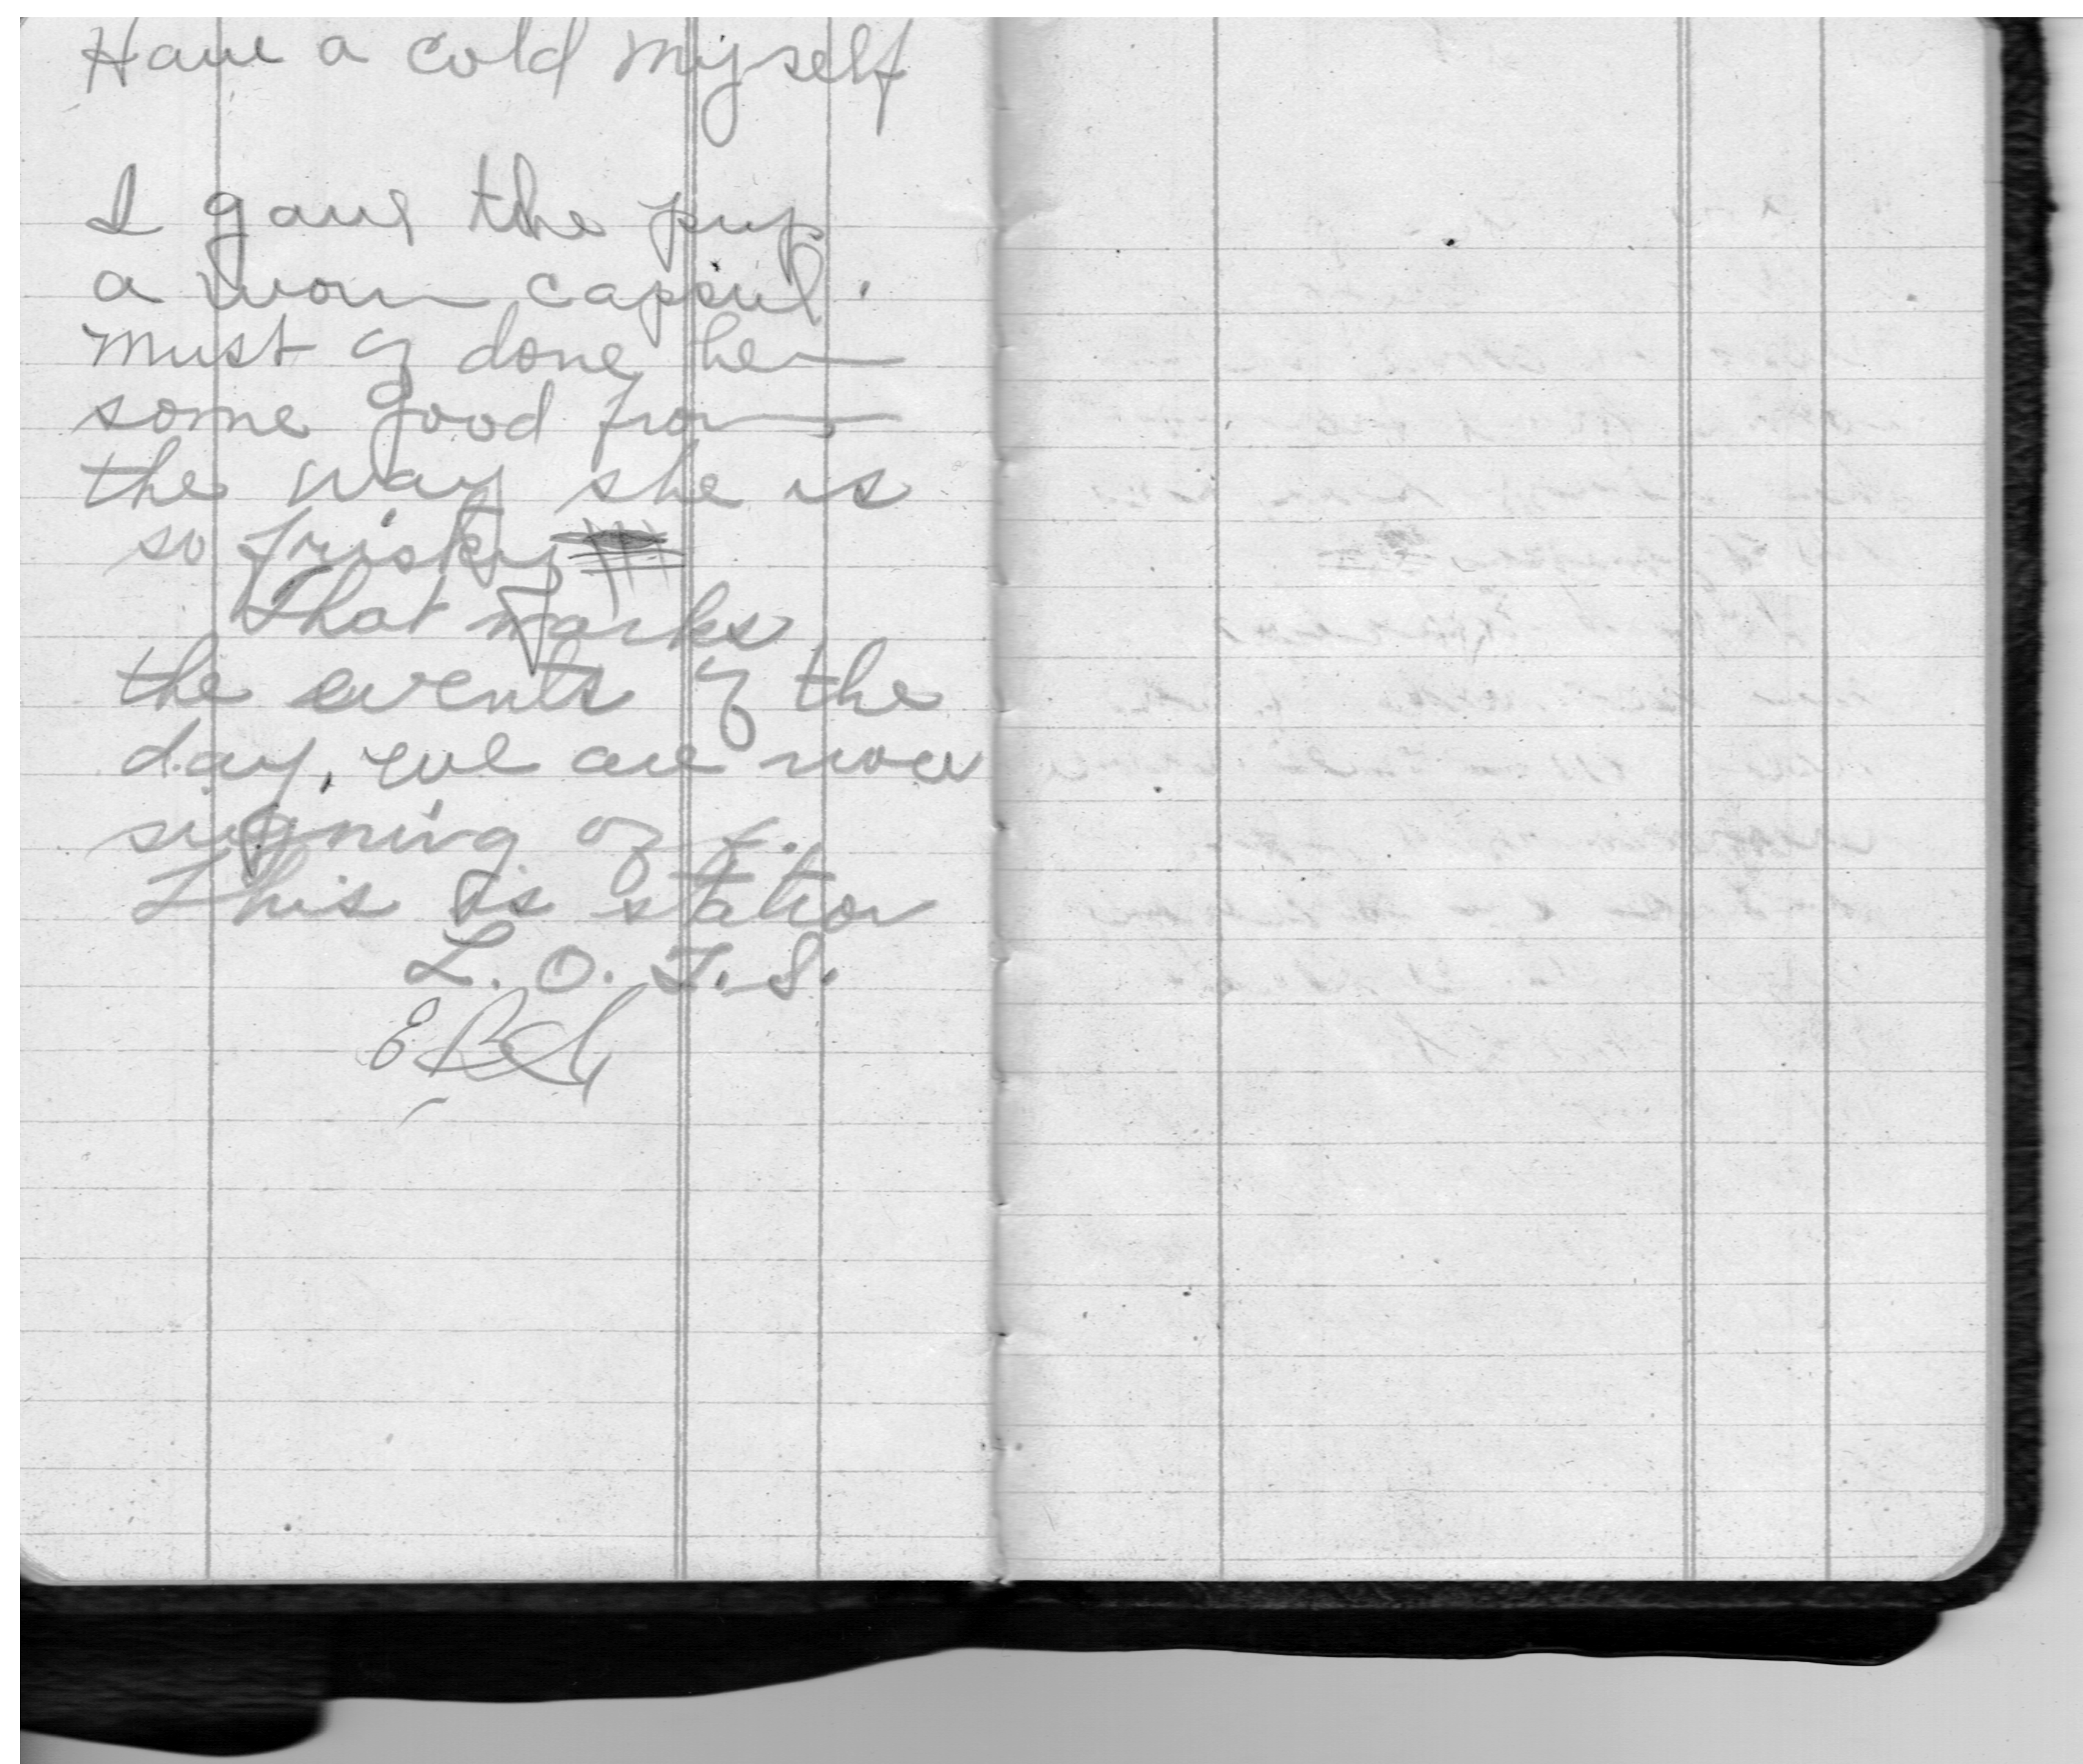 Have a cold myself
I gave the pup
a worm capsul.
must of done her
some good from
the way she is
so frisky
That marks
the events of the
day, we are now
signing off.
This is station
L. O. T. S.